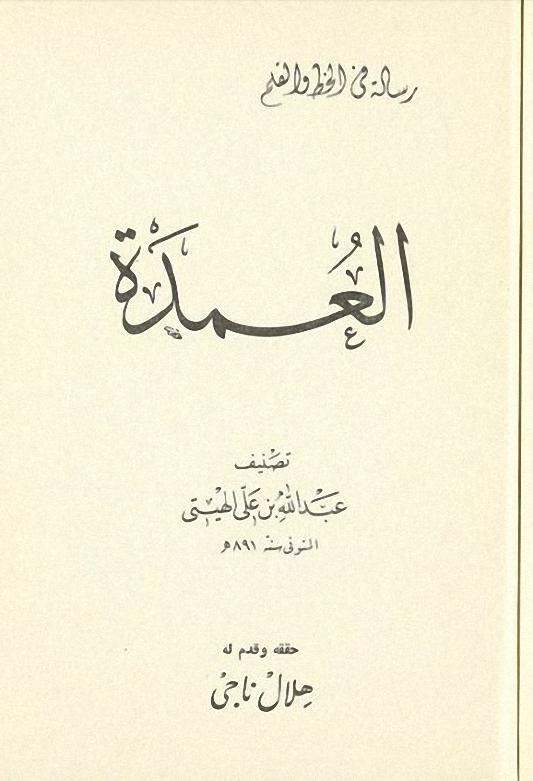 رسالة في الخط والقلم
العُمدَة
تصنيف
عبد الله بن علي الهيتي
المتوفى سنة ٨٩١ هـ
حققه وقدم له
هلال ناجي